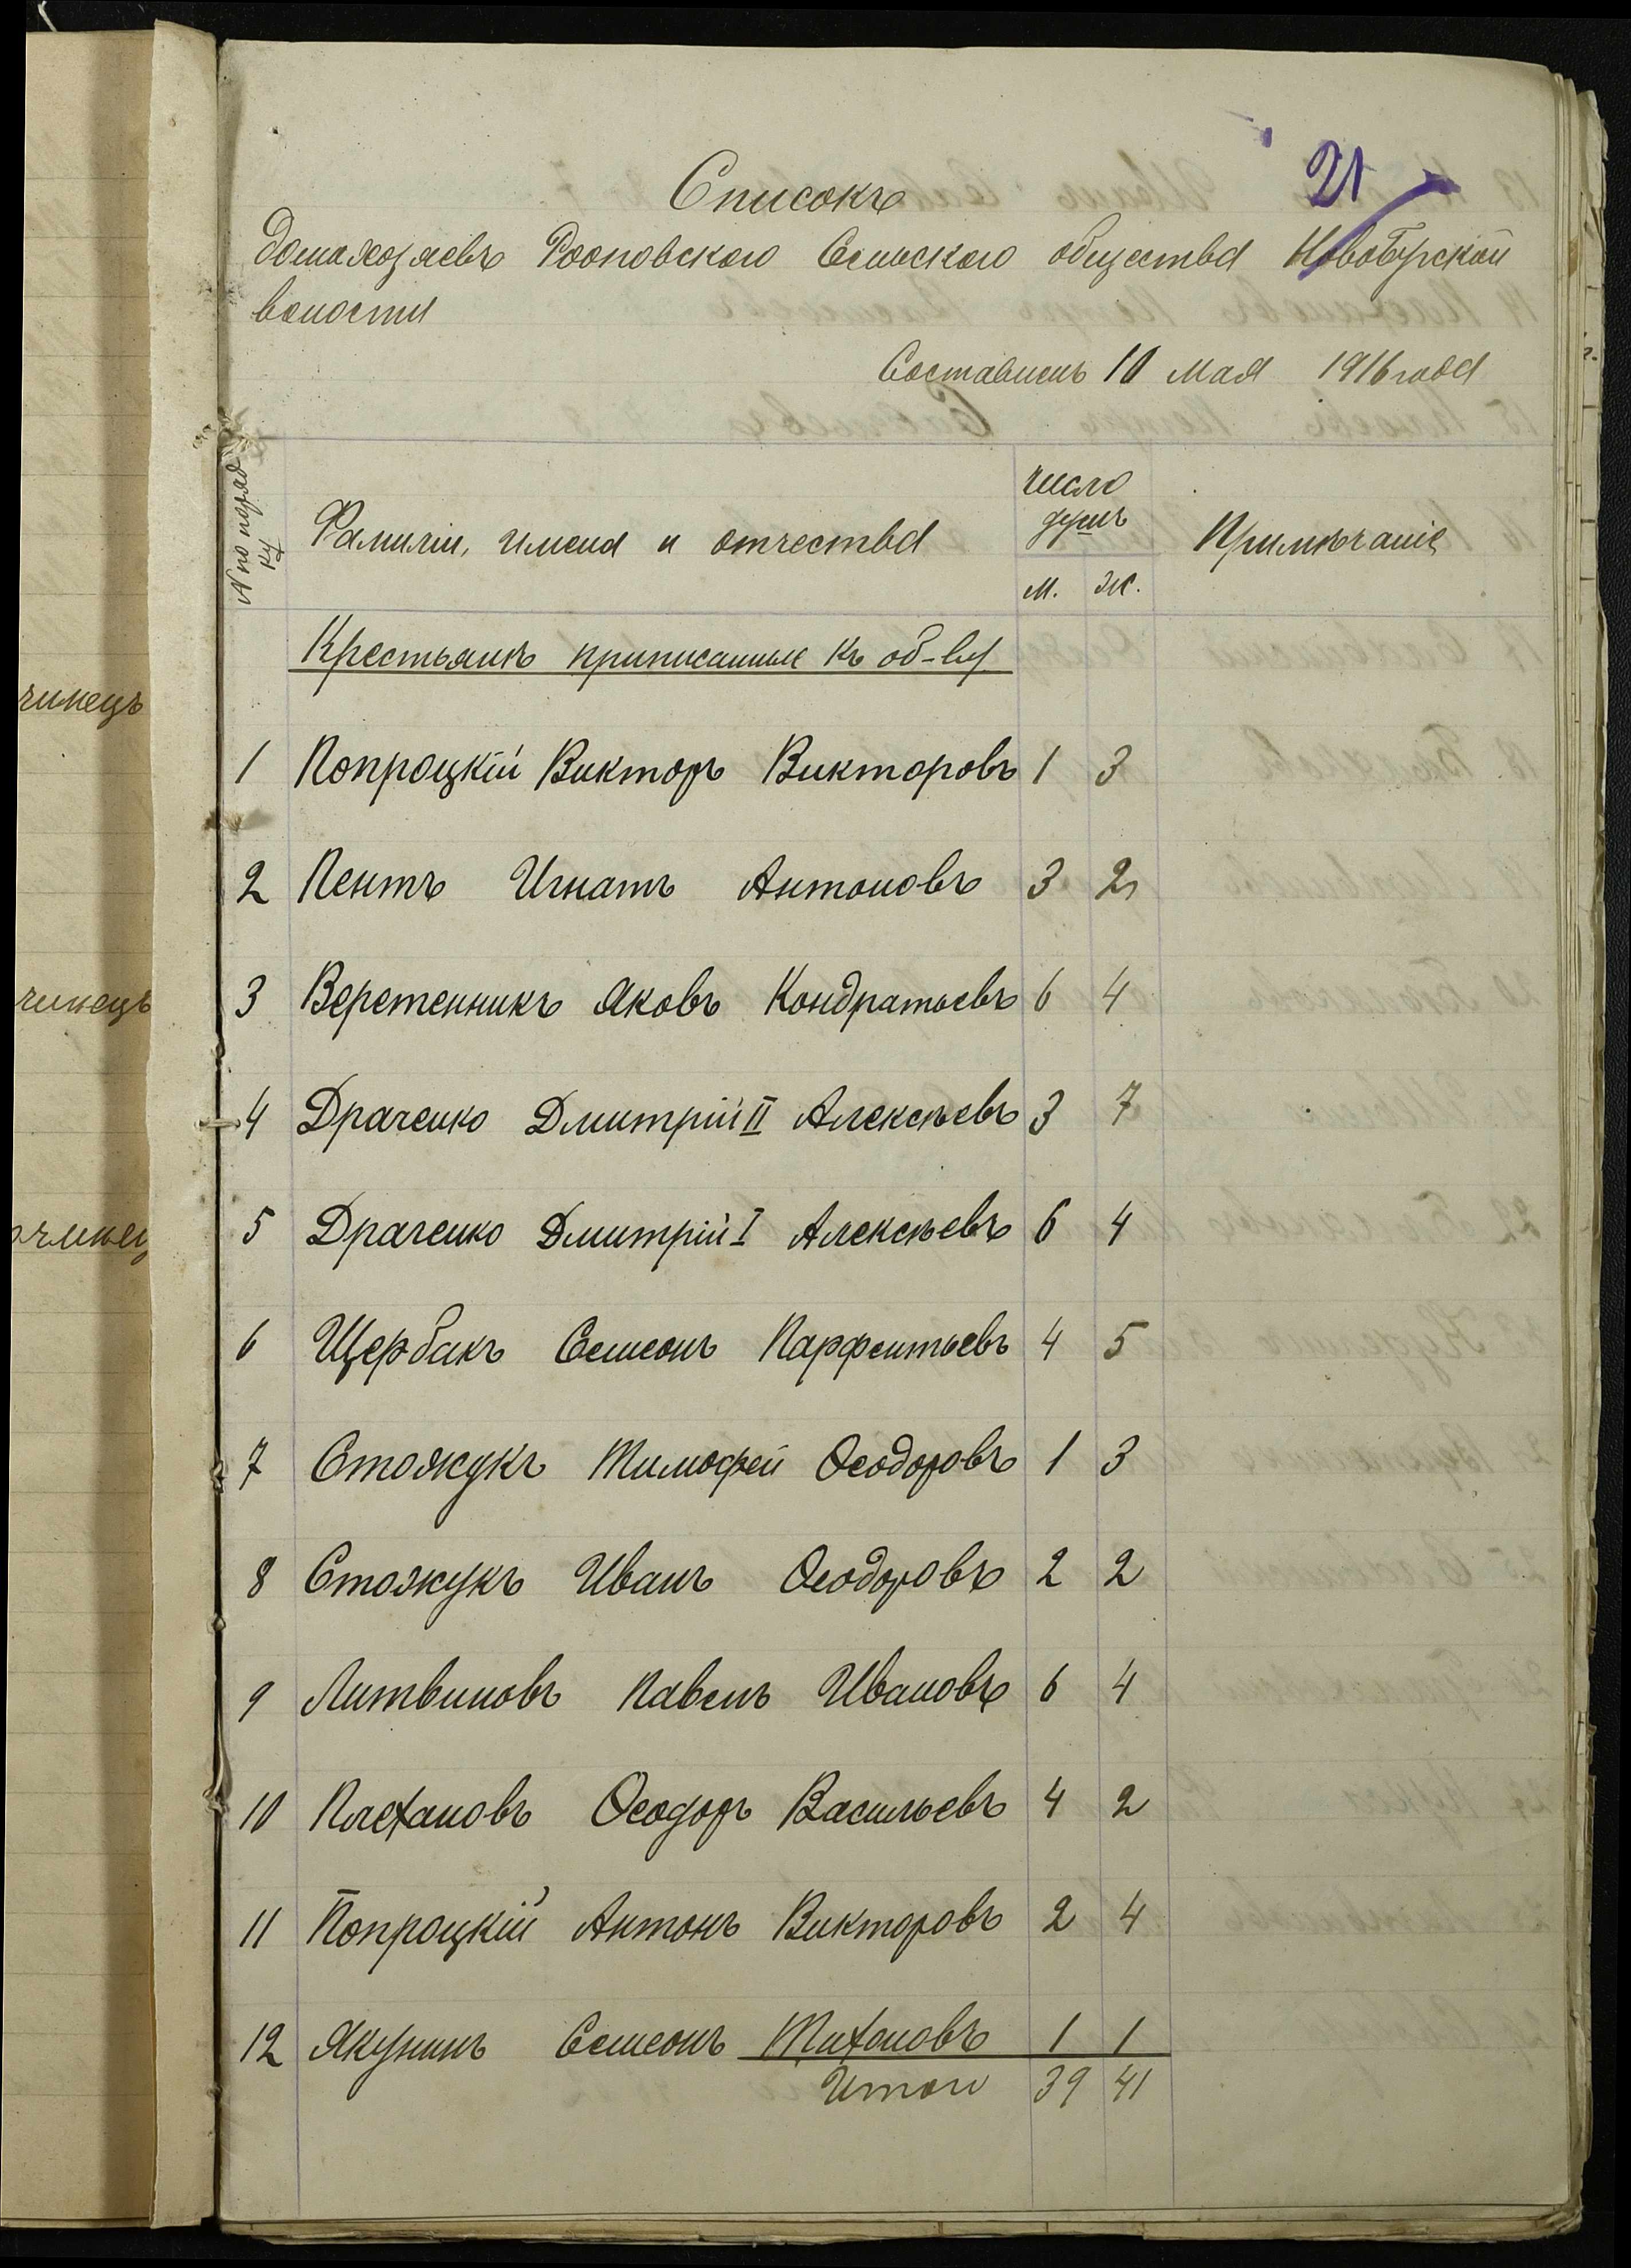 21
Списокъ
домохозяевъ Рооповскаго Сельскаго общества Новобурской
волости
Составленъ 10 Мая 1916 года
№ по поряд
ку
Фамиліи, имена и отчества
число
душъ
Примѣчаніе
м. ж.
Крестьянъ приписанные къ об-ву
1 Попроцкій Викторъ Викторовъ 1 3
2 Пентъ Игнатъ Антоновъ 3 2
3 Веретенникъ Яковъ Кондратьевъ 6 4
4 Драченко Дмитрій II Алексѣевъ 3 7
5 Драченко Дмитрій I Алексѣевъ 6 4
6 Щербакъ Семеонъ Парфентьевъ 4 5
7 Стожукъ Тимофей Ѳеодоровъ 1 3
8 Стожукъ Иванъ Ѳеодоровъ 2 2
9 Литвиновъ Павелъ Ивановъ 6 4
10 Плехановъ Ѳеодоръ Васильевъ 4 2
11 Попроцкій Антонъ Викторовъ 2 4
12 Якунинъ Семеонъ Тихоновъ 1 1
Итого 39 41